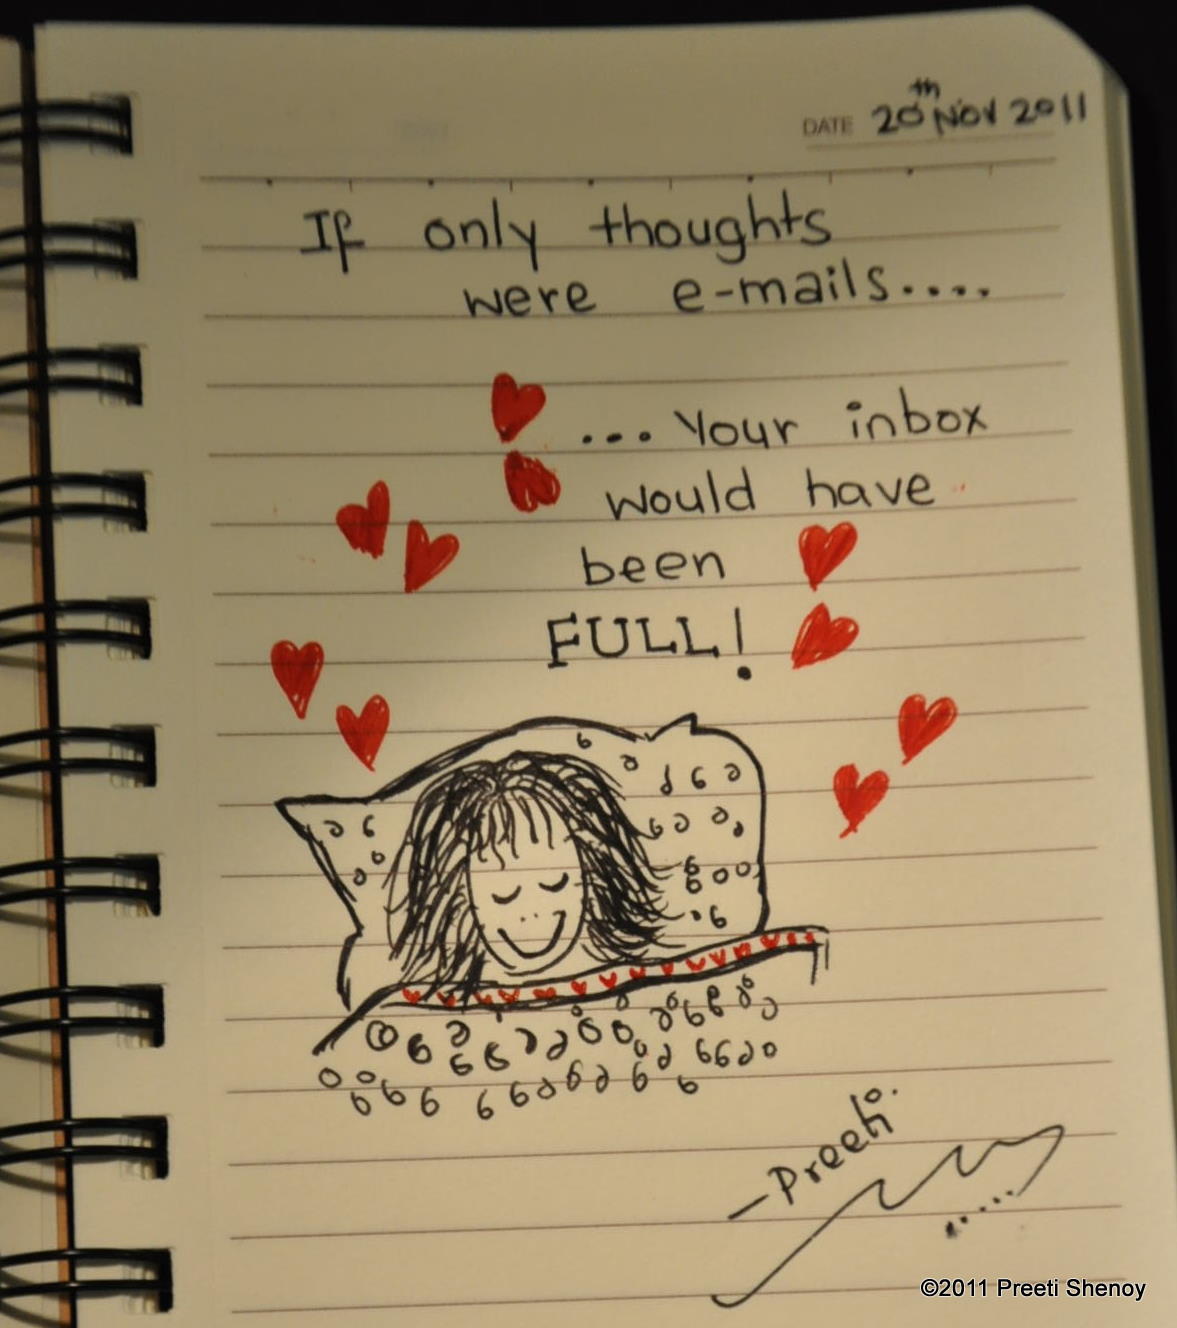 DATE 20th Nov 2011
If only thoughts
were e-mails....
...Your inbox
would have
been
FULL!
-Preeti
©2011 Preeti Shenoy